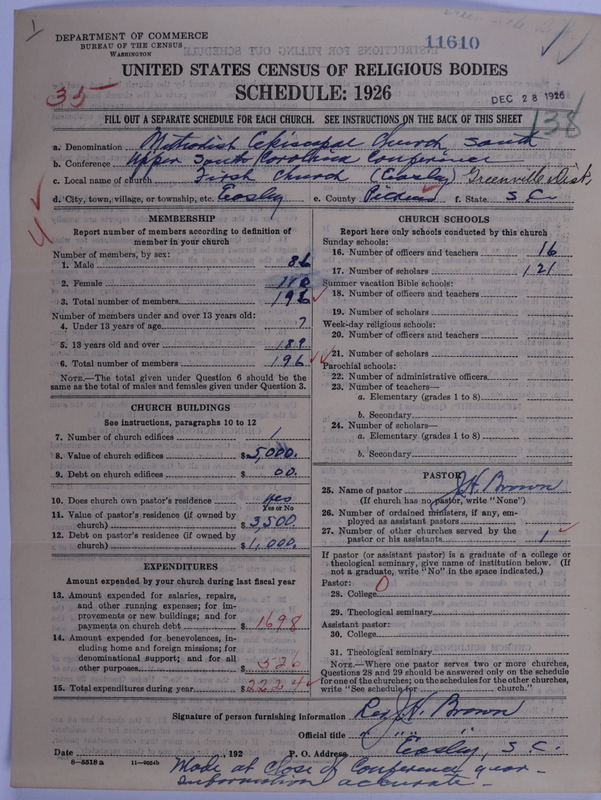 1
DEPARTMENT OF COMMERCE
BUREAU OF THE CENSUS
WASHINGTON
11610
UNITED STATES CENSUS OF RELIGIOUS BODIES
35
SCHEDULE: 1926
DEC 28 1926
138
FILL OUT A SEPARATE SCHEDULE FOR EACH CHURCH. SEE INSTRUCTIONS ON THE BACK OF THIS SHEET
a. Denomination Methodist Episcopal Church, South
b. Conference Upper South Carolina Conference
c. Local name of church First Church (Easley) Greenville Dist.
d. City, town, village, or township, etc. Easley e. County Pickens f. State S C
MEMBERSHIP
Report number of members according to definition of
member in your church
Number of members, by sex:
1. Male 86
2. Female 110
3. Total number of members 196
Number of members under and over 13 years old:
4. Under 13 years of age 7
5. 13 years old and over 189
6. Total number of members 196
NOTE.—The total given under Question 6 should be the
same as the total of males and females given under Question 3.
CHURCH BUILDINGS
See instructions, paragraphs 10 to 12
7. Number of church edifices 1
8. Value of church edifices $5,000.
9. Debt on church edifices $ 00.
10. Does church own pastor's residence yes
Yes or No
11. Value of pastor's residence (if owned by
church) $3,500
12. Debt on pastor's residence (if owned by
church) $1,000.
EXPENDITURES
Amount expended by your church during last fiscal year
13. Amount expended for salaries, repairs,
and other running expenses; for im-
provements or new buildings; and for
payments on church debt $ 1698
14. Amount expended for benevolences, in-
cluding home and foreign missions; for
denominational support; and for all
other purposes $ 526
15. Total expenditures during year $ 2224
CHURCH SCHOOLS
Report here only schools conducted by this church
Sunday schools:
16. Number of officers and teachers 16
17. Number of scholars 121
Summer vacation Bible schools:
18. Number of officers and teachers
19. Number of scholars
Week-day religious schools:
20. Number of officers and teachers
21. Number of scholars
Parochial schools:
22. Number of administrative officers
23. Number of teachers—
a. Elementary (grades 1 to 8)
b. Secondary
24. Number of scholars—
a. Elementary (grades 1 to 8)
b. Secondary
PASTOR
25. Name of pastor J. H. Brown
(If church has no pastor, write "None")
26. Number of ordained ministers, if any, em-
ployed as assistant pastors
27. Number of other churches served by the
pastor or his assistants 1
If pastor (or assistant pastor) is a graduate of a college or
theological seminary, give name of institution below. (If
not a graduate, write "No" in the space indicated.)
Pastor: 0
28. College
29. Theological seminary
Assistant pastor:
30. College
31. Theological seminary
NOTE.—Where one pastor serves two or more churches,
Questions 28 and 29 should be answered only on the schedule
for one of the churches; on the schedules for the other churches,
write "See schedule for church."
Signature of person furnishing information Rev J. H. Brown
Official title " " "
Date , 192 P. O. Address Easley, S. C.
8—5518 a 11—9024b
Made at close of Conference year—
Information accurate—